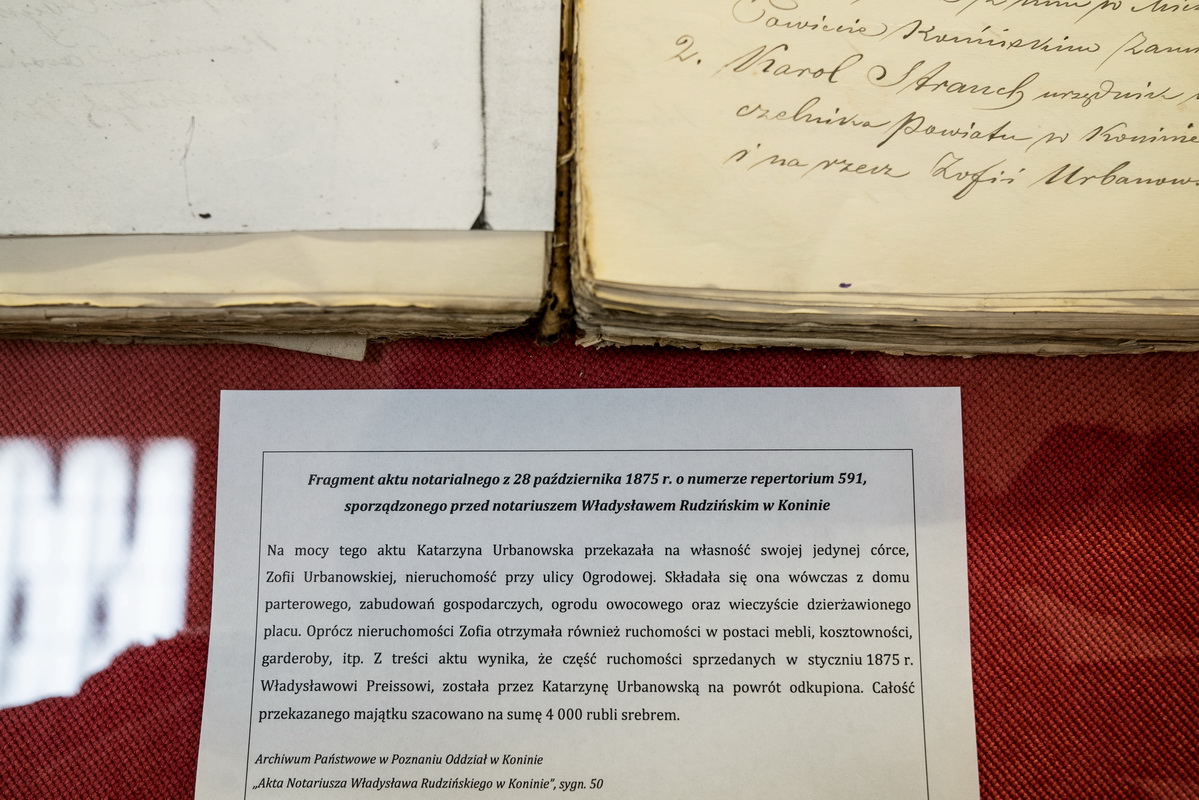 Powiecie Konińskim
2. Karol Strauch urzędnik
czelnika Powiatu w Koninie
i na rzecz Zofii
Fragment aktu notarialnego z 28 października 1875 r. o numerze repertorium 591,
sporządzonego przed notariuszem Władysławem Rudzińskim w Koninie
Na mocy tego aktu Katarzyna Urbanowska przekazała na własność swojej jedynej córce,
Zofii Urbanowskiej, nieruchomość przy ulicy Ogrodowej. Składała się ona wówczas z domu
parterowego, zabudowań gospodarczych, ogrodu owocowego oraz wieczyście dzierżawionego
placu. Oprócz nieruchomości Zofia otrzymała również ruchomości w postaci mebli, kosztowności,
garderoby, itp. Z treści aktu wynika, że część ruchomości sprzedanych w styczniu 1875 r.
Władysławowi Preissowi, została przez Katarzynę Urbanowską na powrót odkupiona. Całość
przekazanego majątku szacowano na sumę 4 000 rubli srebrem.
Archiwum Państwowe w Poznaniu Oddział w Koninie
„Akta Notariusza Władysława Rudzińskiego w Koninie”, sygn. 50